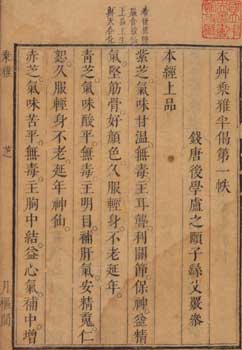 本艸乘雅半偈第一帙
錢唐後學盧之頤子繇父覈參
本經上品
紫芝氣味甘溫。無毒。主耳聾。利關節。保神。益精
氣。堅筋骨。好顏色。久服輕身。不老延年。
青芝氣味酸平。無毒。主明目。補肝氣。安精䰟。仁
恕。久服輕身。不老延年。神仙。
赤芝氣味苦平。無毒。主胸中結。益心氣。補中。增
乘雅 芝 月樞閣